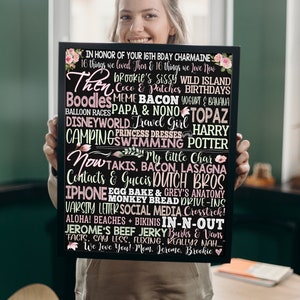 IN HONOR OF YOUR 16TH BDAY CHARMAINE
16 things we loved Then & 16 things we love Now
Then, BROOKIE'S SISSY WILD ISLAND
Coco & Patches BIRTHDAYS
Boodles MEME BACON YOGURT & BANANA
BALLOON RACES PAPA & NONO TOPAZ
DISNEYWORLD Travel Girl HARRY
CAMPING PRINCESS DRESSES POTTER
SWIMMING
Now My Little Char
TAKIS, BACON, LASAGNA
Contacts & Guccis DUTCH BROS
IPHONE EGG BAKE & GREY'S ANATOMY
MONKEY BREAD DRIVE-INS
VARSITY LETTER SOCIAL MEDIA Crosstrek!
ALOHA! BEACHES + BIKINIS IN-N-OUT
JEROME'S BEEF JERKY Burks & Vans
FACTS, SAY LESS, FLIXING, REALLY? NAH...
We Love You! Mom, Jerome, Brookie